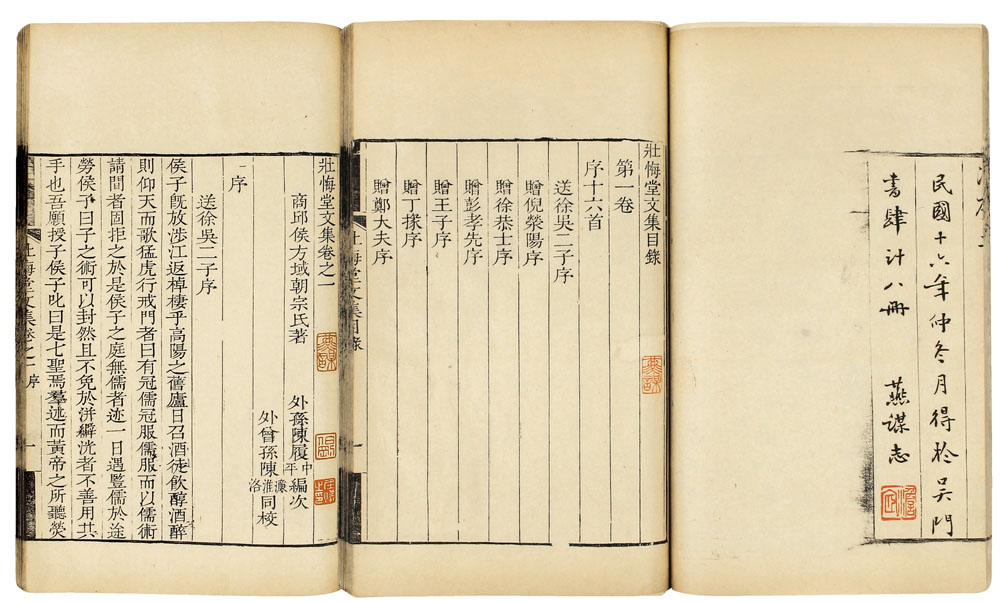 民國十六年仲冬月得於吳門
書肆計八冊 燕謀志
壯悔堂文集目錄
第一卷
序十六首
送徐吳二子序
贈倪滎陽序
贈徐恭士序
贈彭孝先序
贈王子序
贈丁掾序
贈鄭大夫序
壯悔堂文集目錄
一
壯悔堂文集卷之一
商邱侯方域朝宗氏著 外孫陳履中平編次
外曾孫陳濂淮洛同校
序
送徐吳二子序
侯子旣放涉江返棹棲乎高陽之舊廬日召酒徒飲醇酒醉
則仰天而歌猛虎行戒門者曰有冠儒冠服儒服而以儒術
請間者固拒之於是侯子之庭無儒者迹一日遇豎儒於途
勞侯子曰子之術可以封然且不免於洴澼洸者不善用其
手也吾願授子侯子叱曰是七聖焉羣迷而黃帝之所聽熒
壯悔堂文集卷之一 序 一